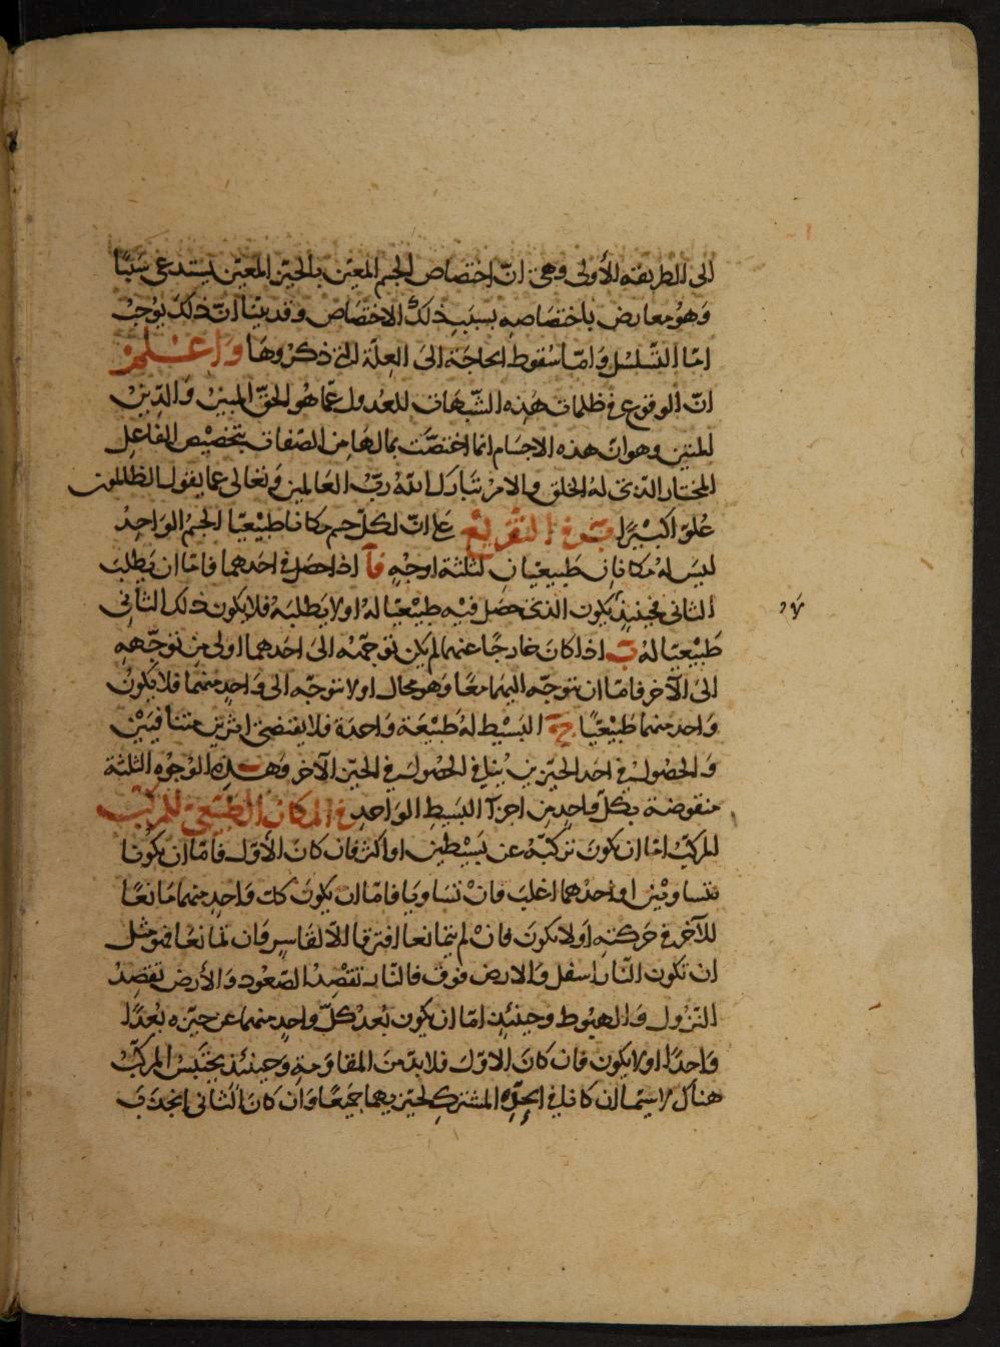 الى الطريقة الأولى وهى انّ اختصاص الجسم المعيّن بالحيّز المعيّن يستدعى سببًا
وهو معارض باختصاصه بسبب ذلك الاختصاص وقد بيّنا انّ ذلك يوجب
امّا التسلسل وامّا سقوط الحاجة الى العلّة التى ذكروها واعلم
انّ الوقوع فى ظلمات هذه الشبهات للعدول عمّا هو الحقّ المبين والدين
المتين وهو انّ هذه الاجسام انما اختصّت بمالها من الصفات بتخصيص الفاعل
المختار الذى له الخلق والامر تبارك الله ربّ العالمين وتعالى عما يقول الظالمون
علوّا كبيرًا التفريع على انّ لكل جسم مكانا طبيعيّا الجسم الواحد
ليس له مكانان طبيعيان لثلثة اوجه آ اذا حصل فى احدهما فامّا ان يطلب
الثانى فحينئذ يكون الذى حصل فيه طبيعيّا له او لا يطلبه فلا يكون ذلك الثانى
طبيعيّا له ب اذا كان خارجًا عنهما لم يكن توجّهه الى احدهما اولى من توجّهه
الى الآخر فامّا ان يتوجّه اليهما معًا وهو محال او لا يتوجّه الى واحد منهما فلا يكون
واحد منهما طبيعيّا ج البسيط له طبيعة واحدة فلا يقتضى اثرين متنافيين
والحصول فى احد الحيّزين ينافى الحصول فى الحيّز الآخر وهذه الوجوه الثلثة
منقوضة بكلّ واحد من اجزآ البسيط الواحد المكان الطبيعى للمركب
المركّب امّا ان يكون تركّبه عن بسيطين او اكثر فان كان الأوّل فامّا ان يكونا
متساويين او احدهما اغلب فان تساويا فامّا ان يكون كل واحد منهما مانعًا
للآخر فى حركته او لا يكون فان لم يتمانعا افترقا الّا لقاسر وان تمانعا فهو مثل
ان تكون النار اسفل والارض فوق فالنار تقصد الصعود والأرض تقصد
النزول والهبوط وحينئذ امّا ان يكون بُعد كلّ واحد منهما عن حيّزه بُعدًا
واحدًا او لا يكون فان كان الاوّل فلا بدّ من المقاومة وحينئذ يحتبس المركّب
هناك لا سيّما ان كانا فى الحدّ المشترك لحيّزيهما جميعًا وان كان الثانى انجذب